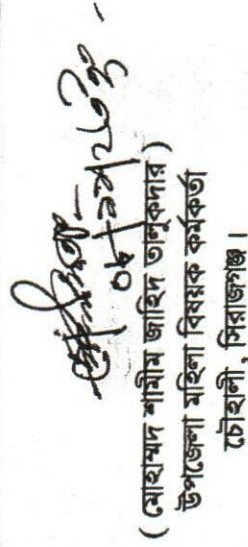 ( মোহাম্মদ শামীম জাহিদ তালুকদার )
উপজেলা মহিলা বিষয়ক কর্মকর্তা
চৌহালী, সিরাজগঞ্জ।